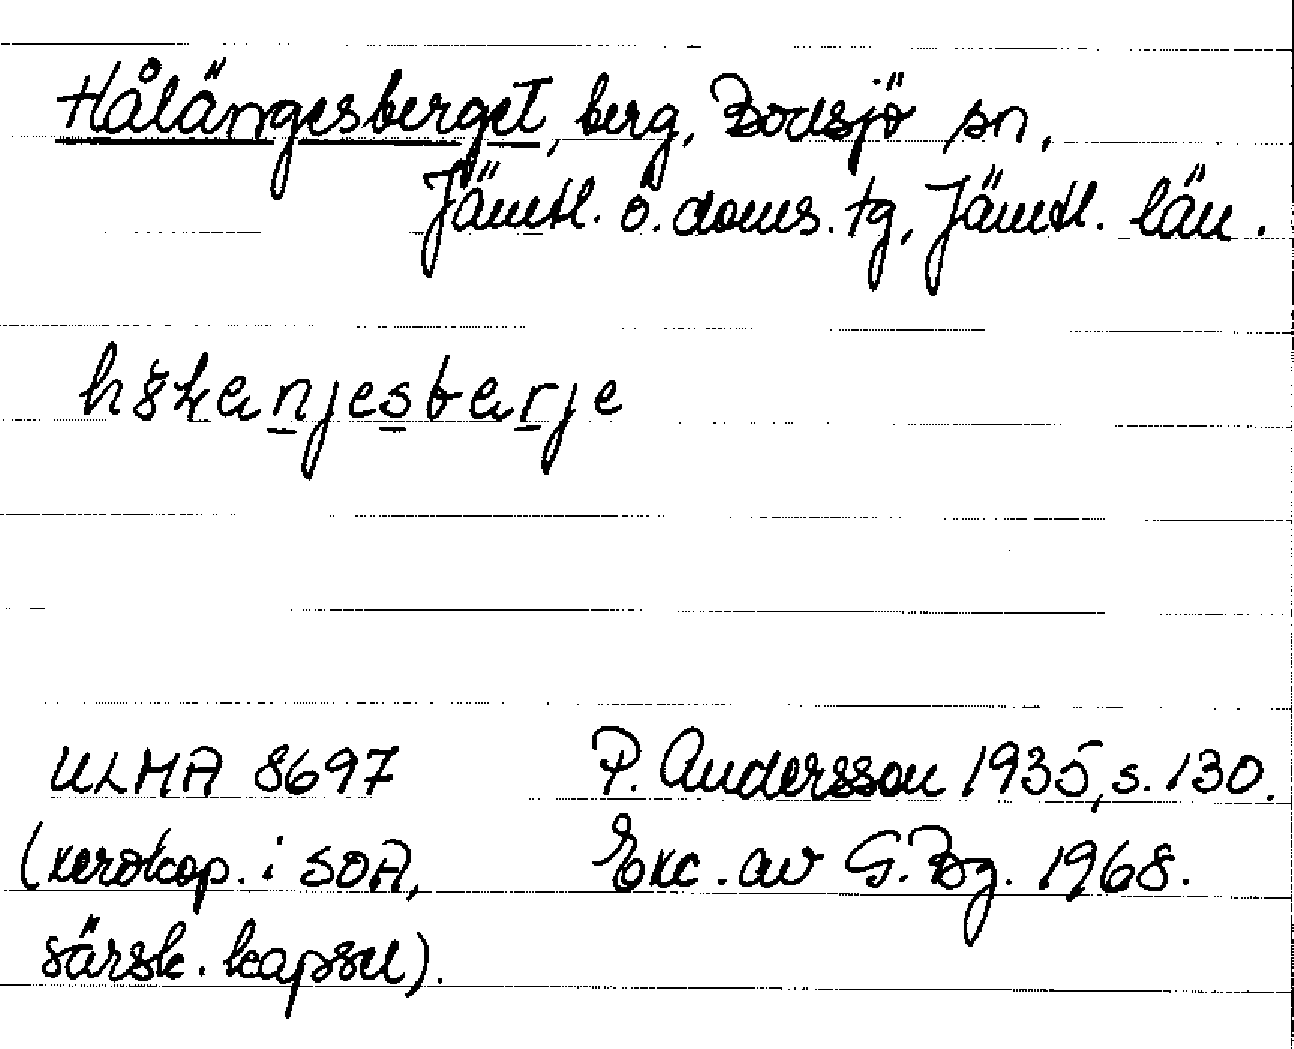 Hålängesberget, berg, Bodsjö sn,
Jämtl. ö. doms. tg, Jämtl. län.
ULMA 8697 P. Andersson 1935, s. 130.
(xerokop. i SOA, Exc. av G. Bg. 1968.
särsk. kapsel).